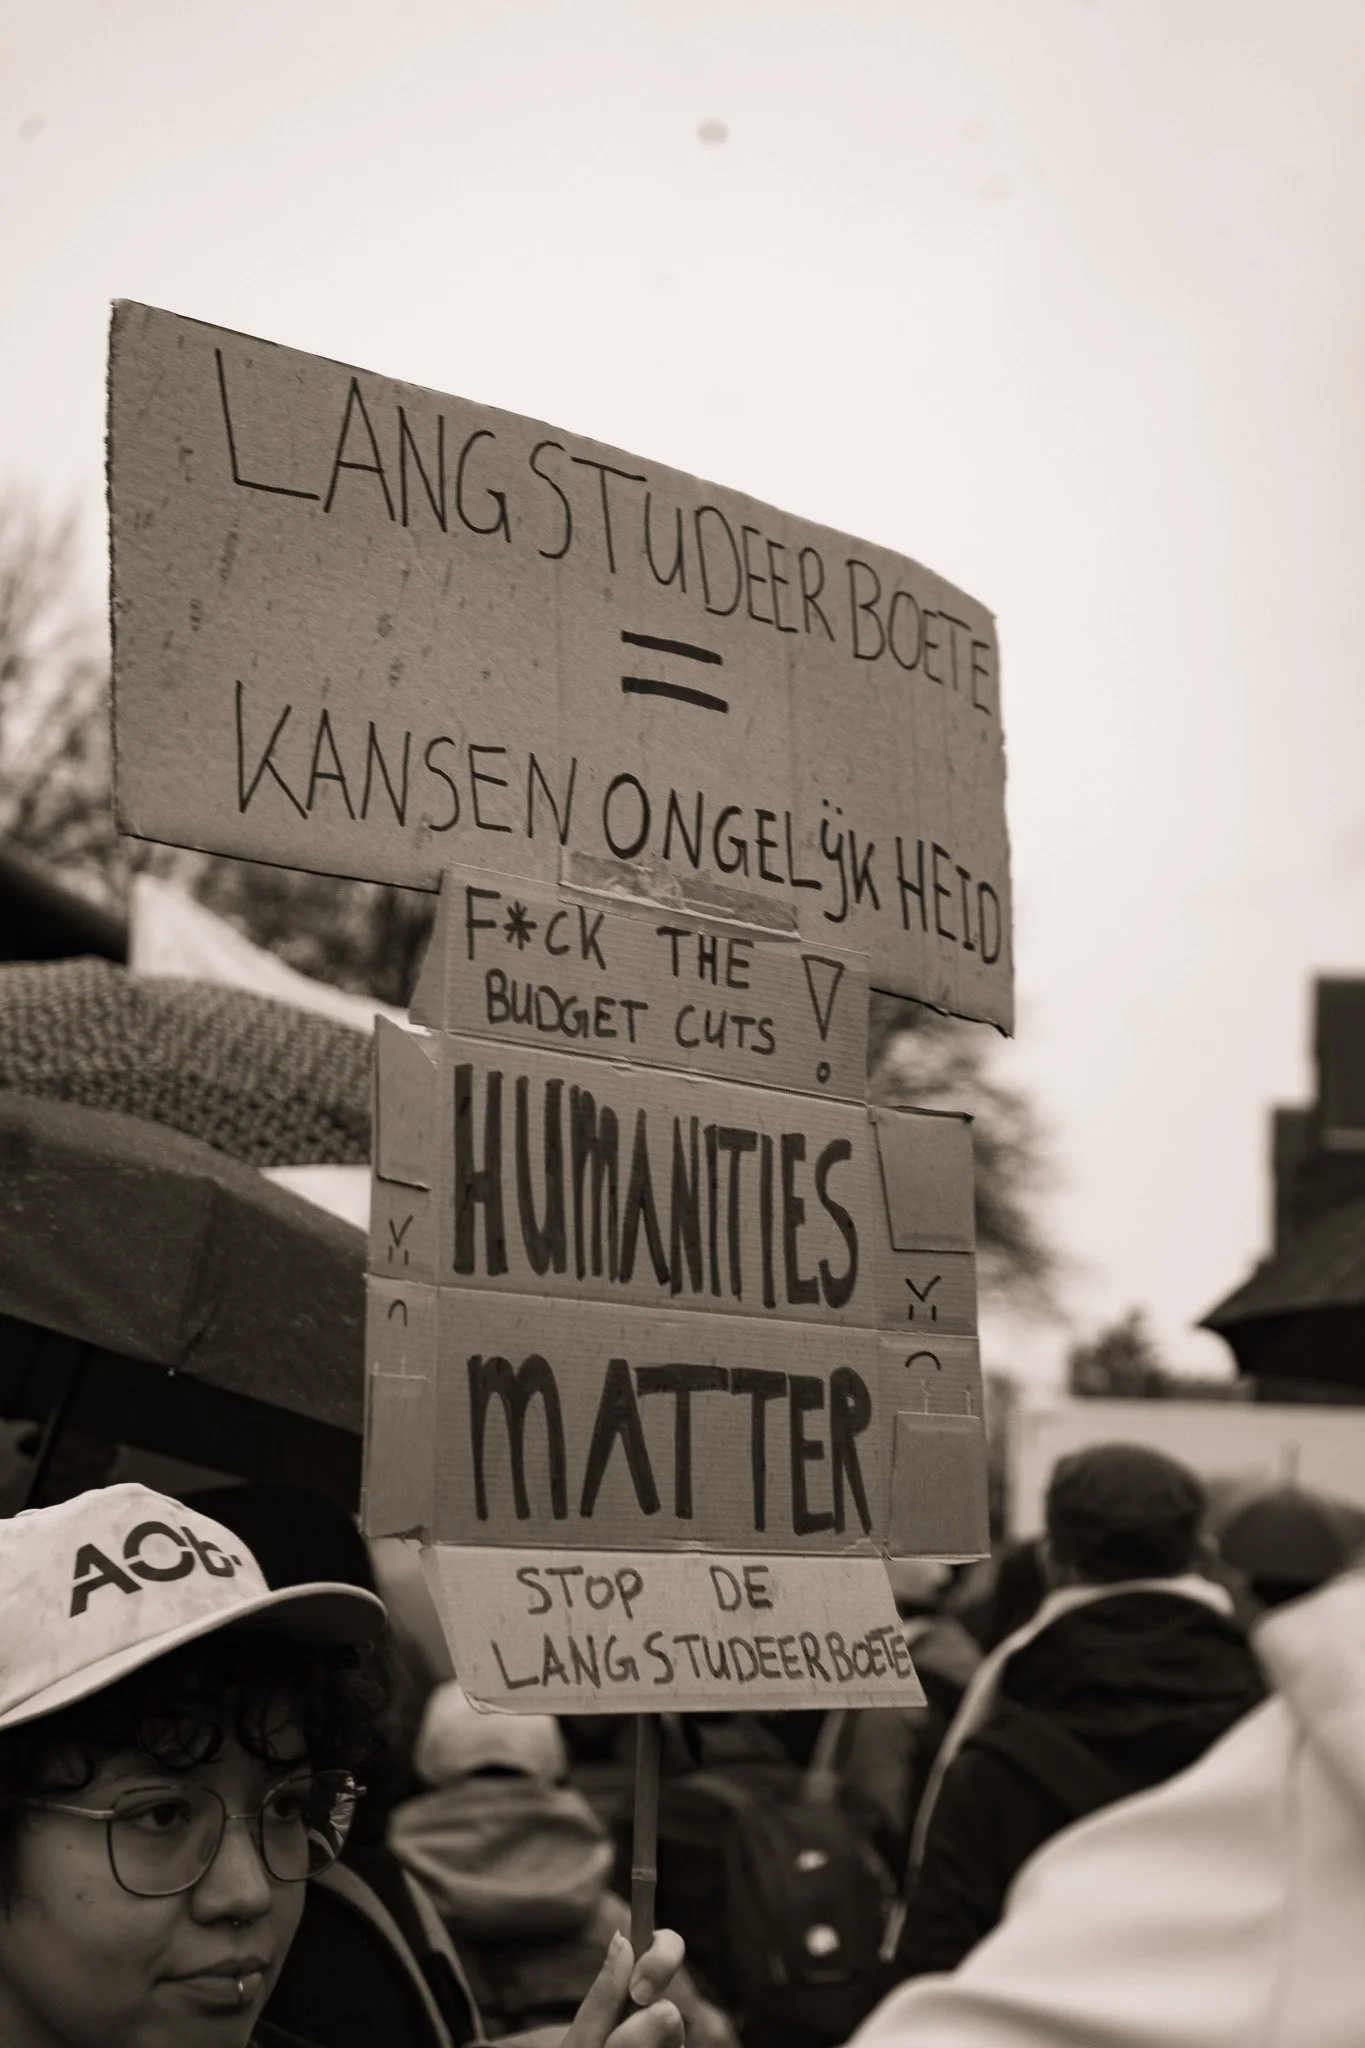 LANGSTUDEERBOETE
=
KANSENONGELӱKHEID
F*CK THE
BUDGET CUTS !
HUMANITIES
MATTER
STOP DE
LANGSTUDEERBOETE
AOb.